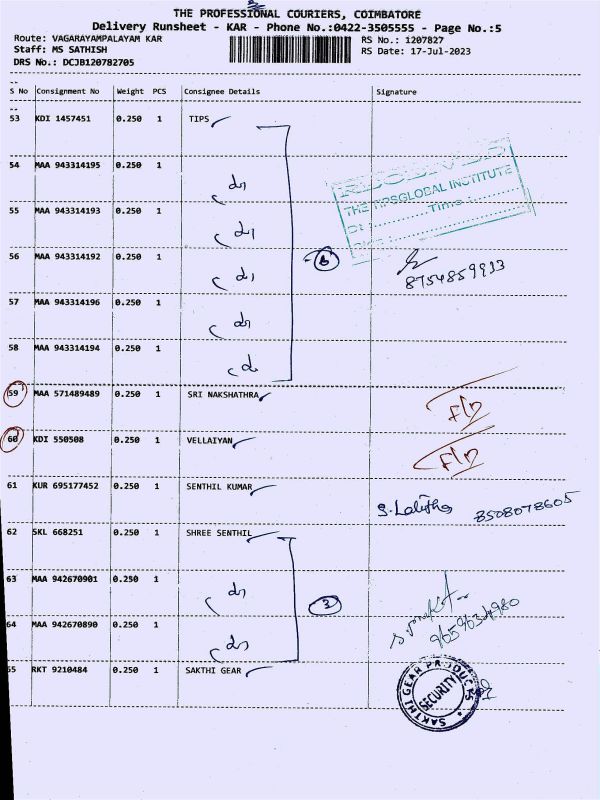 THE PROFESSIONAL COURIERS, COIMBATORE
Delivery Runsheet - KAR - Phone No.:0422-3505555 - Page No.:5
Route: VAGARAYAMPALAYAM KAR
RS No.: 1207827
Staff: MS SATHISH
RS Date: 17-Jul-2023
DRS No.: DCJB120782705
S No Consignment No Weight PCS Consignee Details Signature
53 KDI 1457451 0.250 1 TIPS
54 MAA 943314195 0.250 1
RECEIVED
THE TIPSGLOBAL INSTITUTE
Time:
55 MAA 943314193 0.250 1
56 MAA 943314192 0.250 1 6
8754859913
57 MAA 943314196 0.250 1
58 MAA 943314194 0.250 1
59 MAA 571489489 0.250 1 SRI NAKSHATHRA
60 KDI 550508 0.250 1 VELLAIYAN
61 KUR 695177452 0.250 1 SENTHIL KUMAR S. Lalitha 8508078605
62 SKL 668251 0.250 1 SHREE SENTHIL
63 MAA 942670901 0.250 1 3
9659634980
64 MAA 942670890 0.250 1
65 RKT 9210484 0.250 1 SAKTHI GEAR
SAKTHI GEAR PRODUCTS
SECURITY